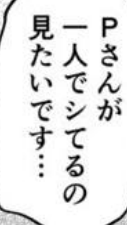 Pさんが
一人でシてるの
見たいです…